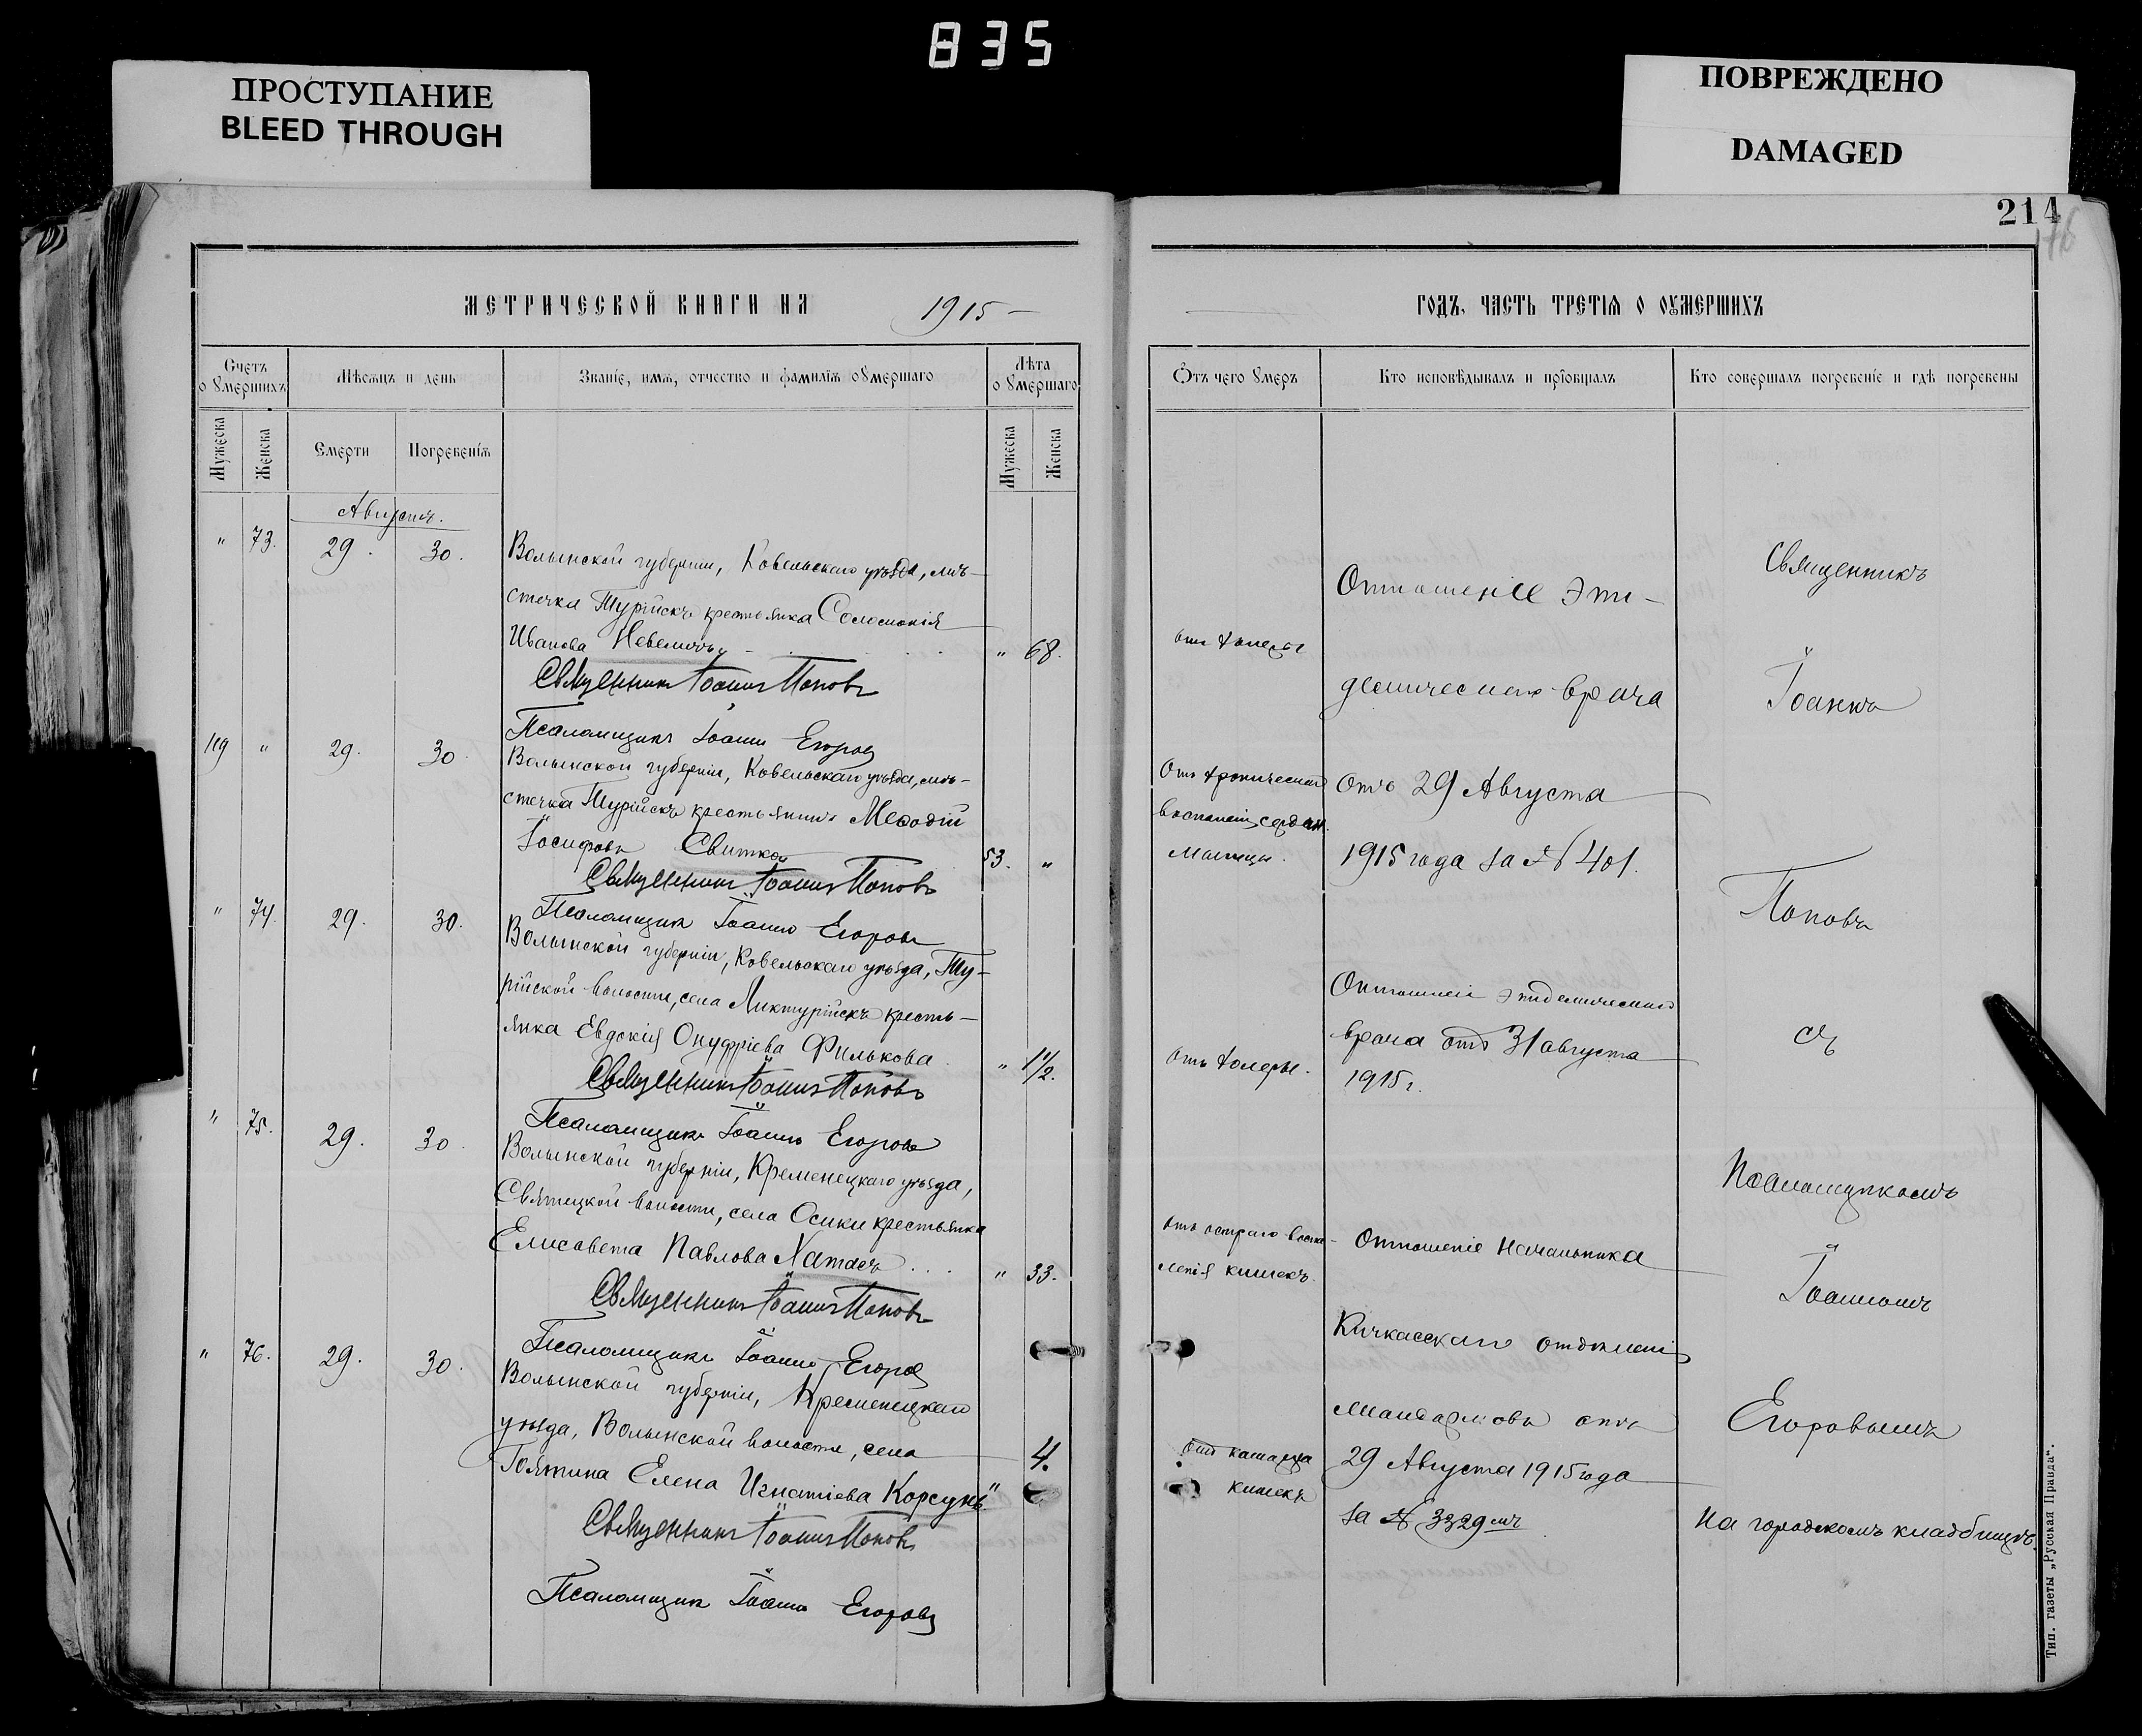 835
ПРОСТУПАНИЕ
BLEED THROUGH
ПОВРЕЖДЕНО
DAMAGED
214
МЕТРИЧЕСКОЙ КНИГИ НА 1915
Счетъ о умершихъ
Мѣсяцъ и день
Званіе, имя, отчество и фамилія умершаго
Лѣта умершаго
Мужеска
Женска
Смерти
Погребенія
Мужеска
Женска
Августъ.
" 73. 29. 30. Волынской губерніи, Ковельскаго уѣзда, мѣ-
стечка Турійскъ крестьянка Соломонія
Иванова " 68.
Священникъ Іоаннъ Поповъ
Псаломщикъ Іоаннъ Егоровъ
119 " 29. 30. Волынской губерніи, Ковельскаго уѣзда, мѣ-
стечка Турійскъ крестьянинъ Меѳодій
Іосифовъ Свитко 53. "
Священникъ Іоаннъ Поповъ
Псаломщикъ Іоаннъ Егоровъ
" 74. 29. 30. Волынской губерніи, Ковельскаго уѣзда, Ту-
рійской волости, села кресть-
янка Евдокія Онуфріева Филькова " 1 1/2.
Священникъ Іоаннъ Поповъ
Псаломщикъ Іоаннъ Егоровъ
" 75. 29. 30. Волынской губерніи, Кременецкаго уѣзда,
волости, села Осники крестьянка
Елисавета Павлова " 33.
Священникъ Іоаннъ Поповъ
Псаломщикъ Іоаннъ Егоровъ
" 76. 29. 30. Волынской губерніи, Кременецкаго
уѣзда, Волынской волости, села
Елена Игнатіева Корсунь " 4.
Священникъ Іоаннъ Поповъ
Псаломщикъ Іоаннъ Егоровъ
ГОДЪ, ЧАСТЬ ТРЕТІЯ О ОУМЕРШИХЪ
Отъ чего умеръ
Кто исповѣдывалъ и пріобщалъ
Кто совершалъ погребеніе и гдѣ погребены
отъ холеры
Отъ хроническаго
воспаленія сердечн.
мышцы.
Отъ холеры.
Отъ остраго воспа-
ленія кишекъ.
отъ катарра
кишекъ
Отношеніе эпи-
демическаго врача
отъ 29 Августа
1915 года за № 401.
Отношеніе эпидемическаго
врача отъ 31 августа
1915 г.
Отношеніе Начальника
Кичкасскаго отдѣленія
жандармовъ отъ
29 Августа 1915 года
за № 3329
Священникъ
Іоаннъ
Поповъ
съ
Псаломщикомъ
Іоанномъ
Егоровымъ
на городскомъ кладбищѣ.
Тип. газеты „Русская Правда".